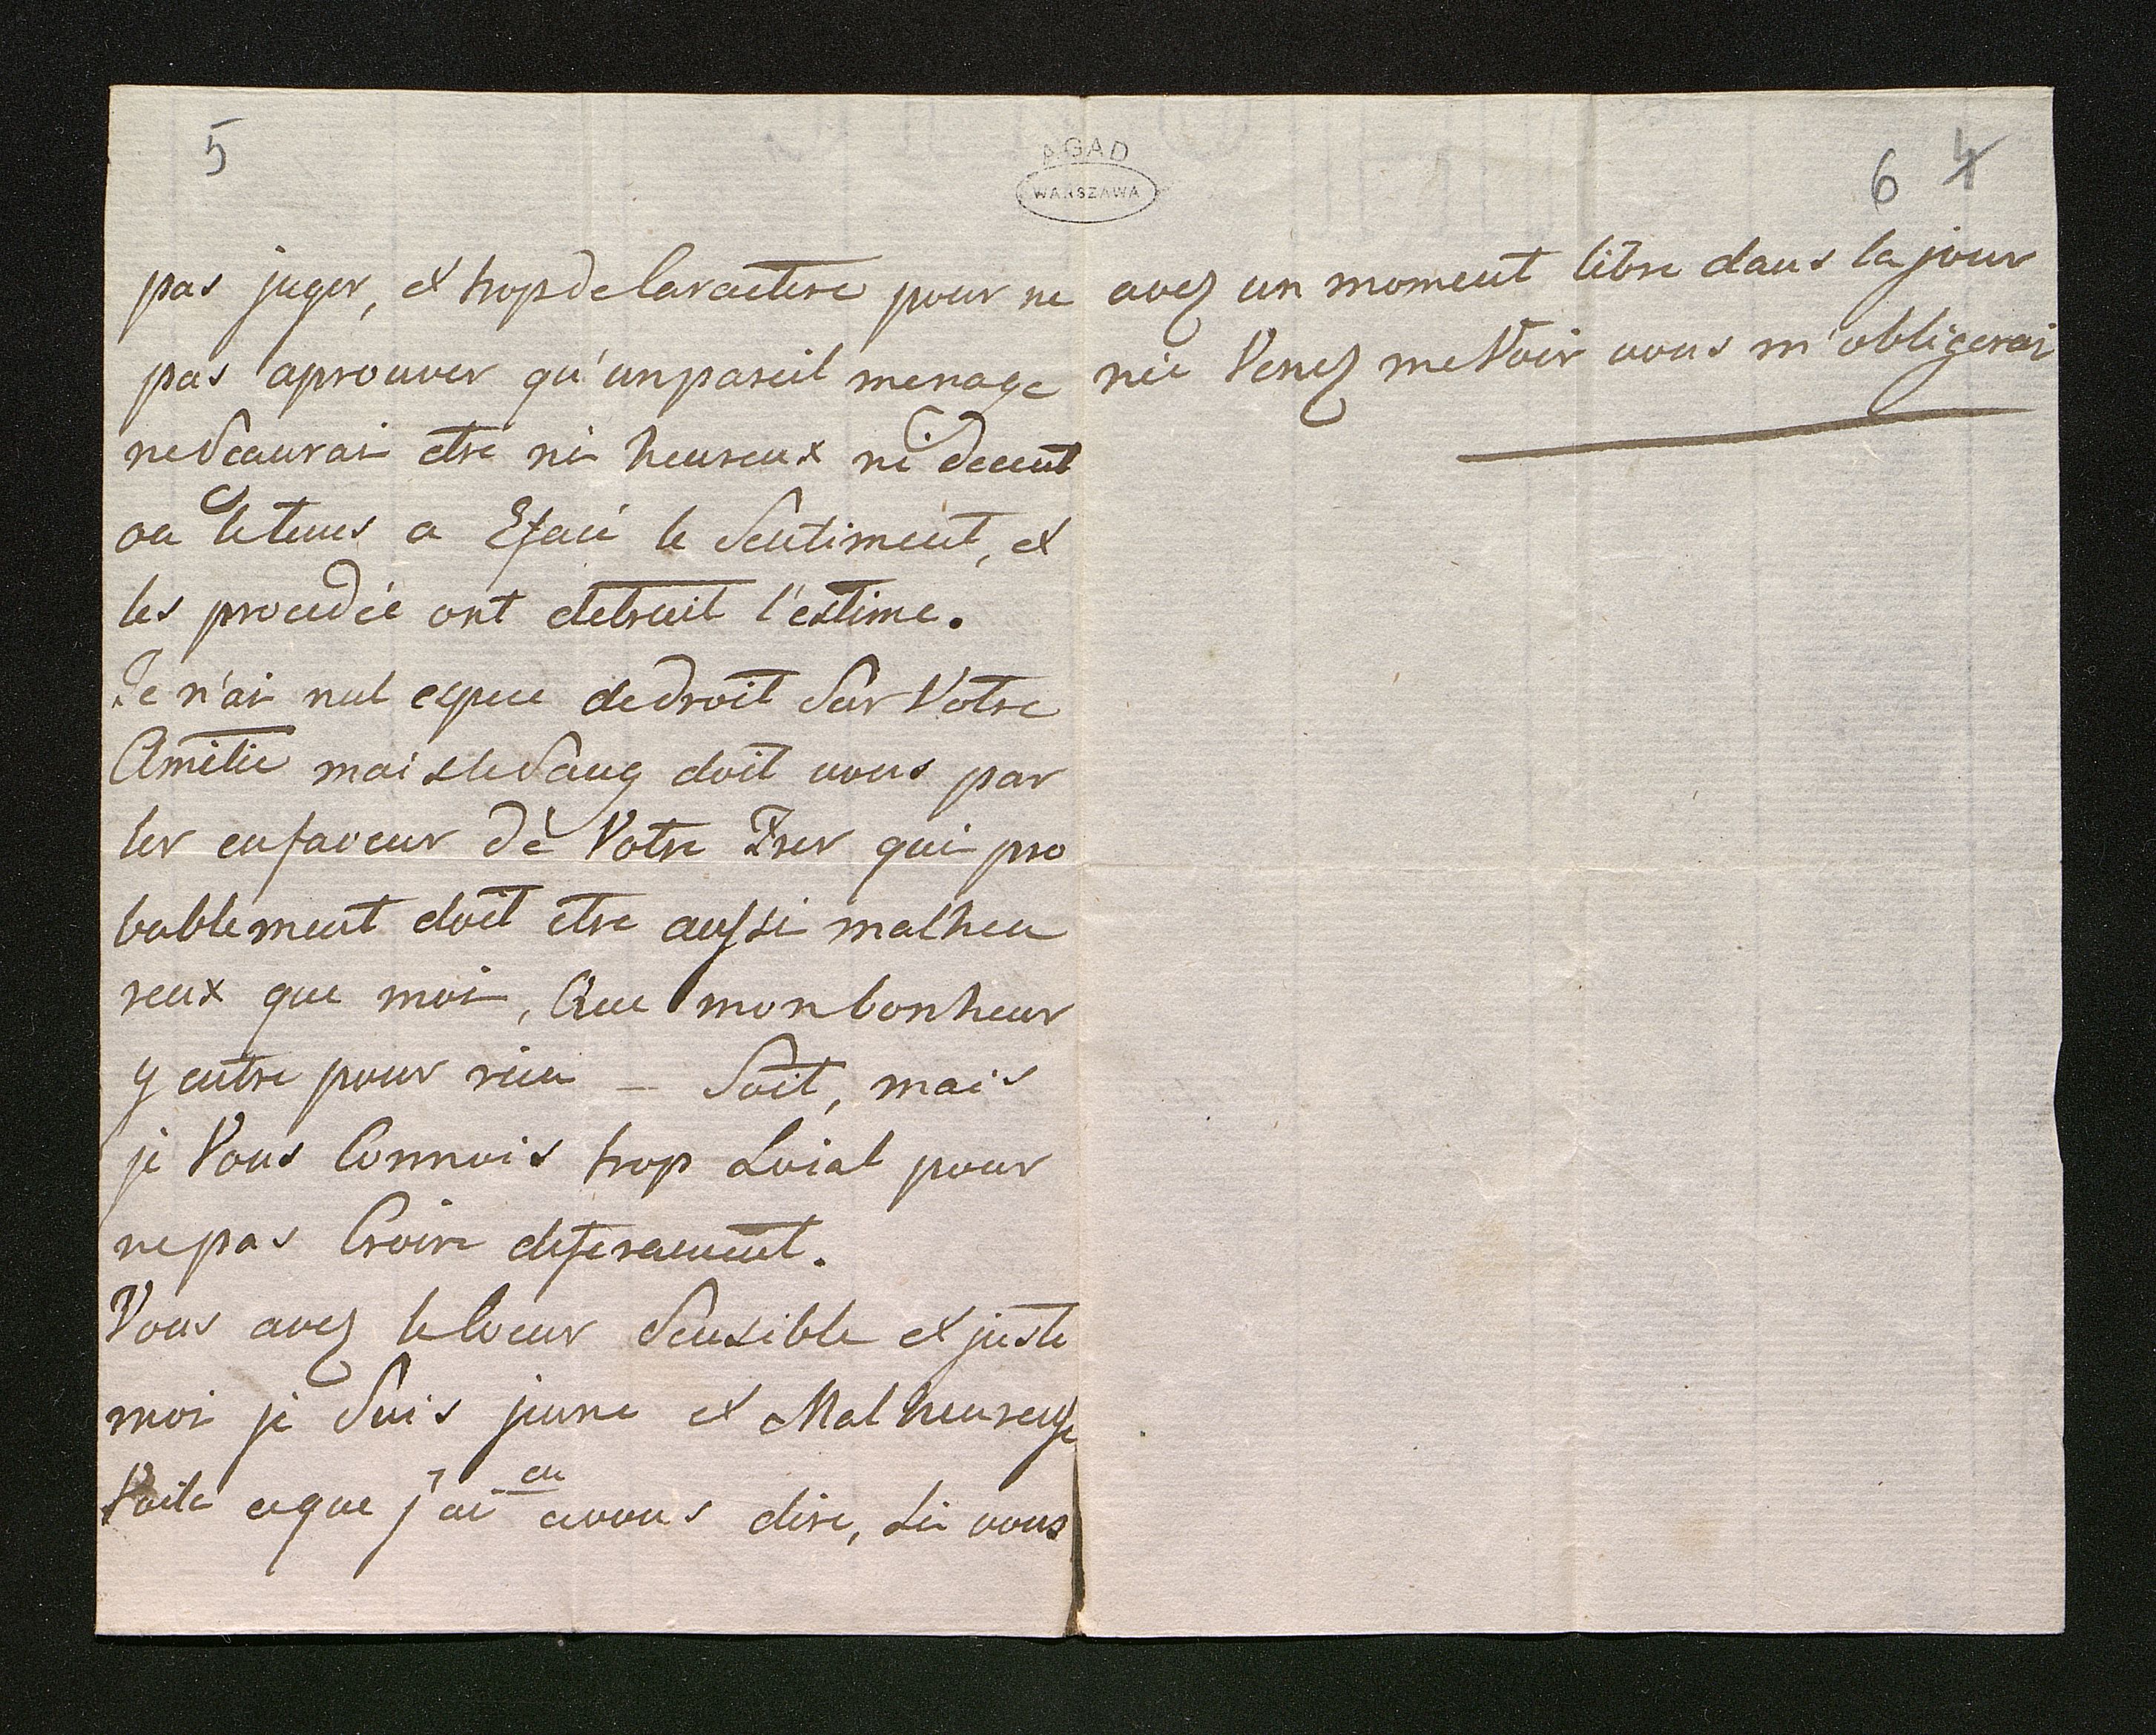 5
AGAD
WARSZAWA
6 4
pas juger, et trop de Caractere pour ne
pas aprouver qu'un pareil menage
ne Scaurai etre ni heureux ni decent
ou le tems a Efacé le Sentiment, et
les procedée ont detruit l'estime.
Je n'ai nul espece de droit Sur Votre
Amitie mais le Sang doit vous par
ler en faveur dè Votre Frer qui pro
bablement doit etre aussi malheu
reux que moi, Que mon bonheur
y entre pour rien – Soit, mais
je Vous Connois trop Loial pour
ne pas Croire diferament.
Vous avez le Coeur Sensible et juste
moi je Suis jeune et Malheureuse
Voila ce que j'ai eu a vous dire, Si vous
avez un moment libre dans la jour
née Venez me Voir vous m'obligerai